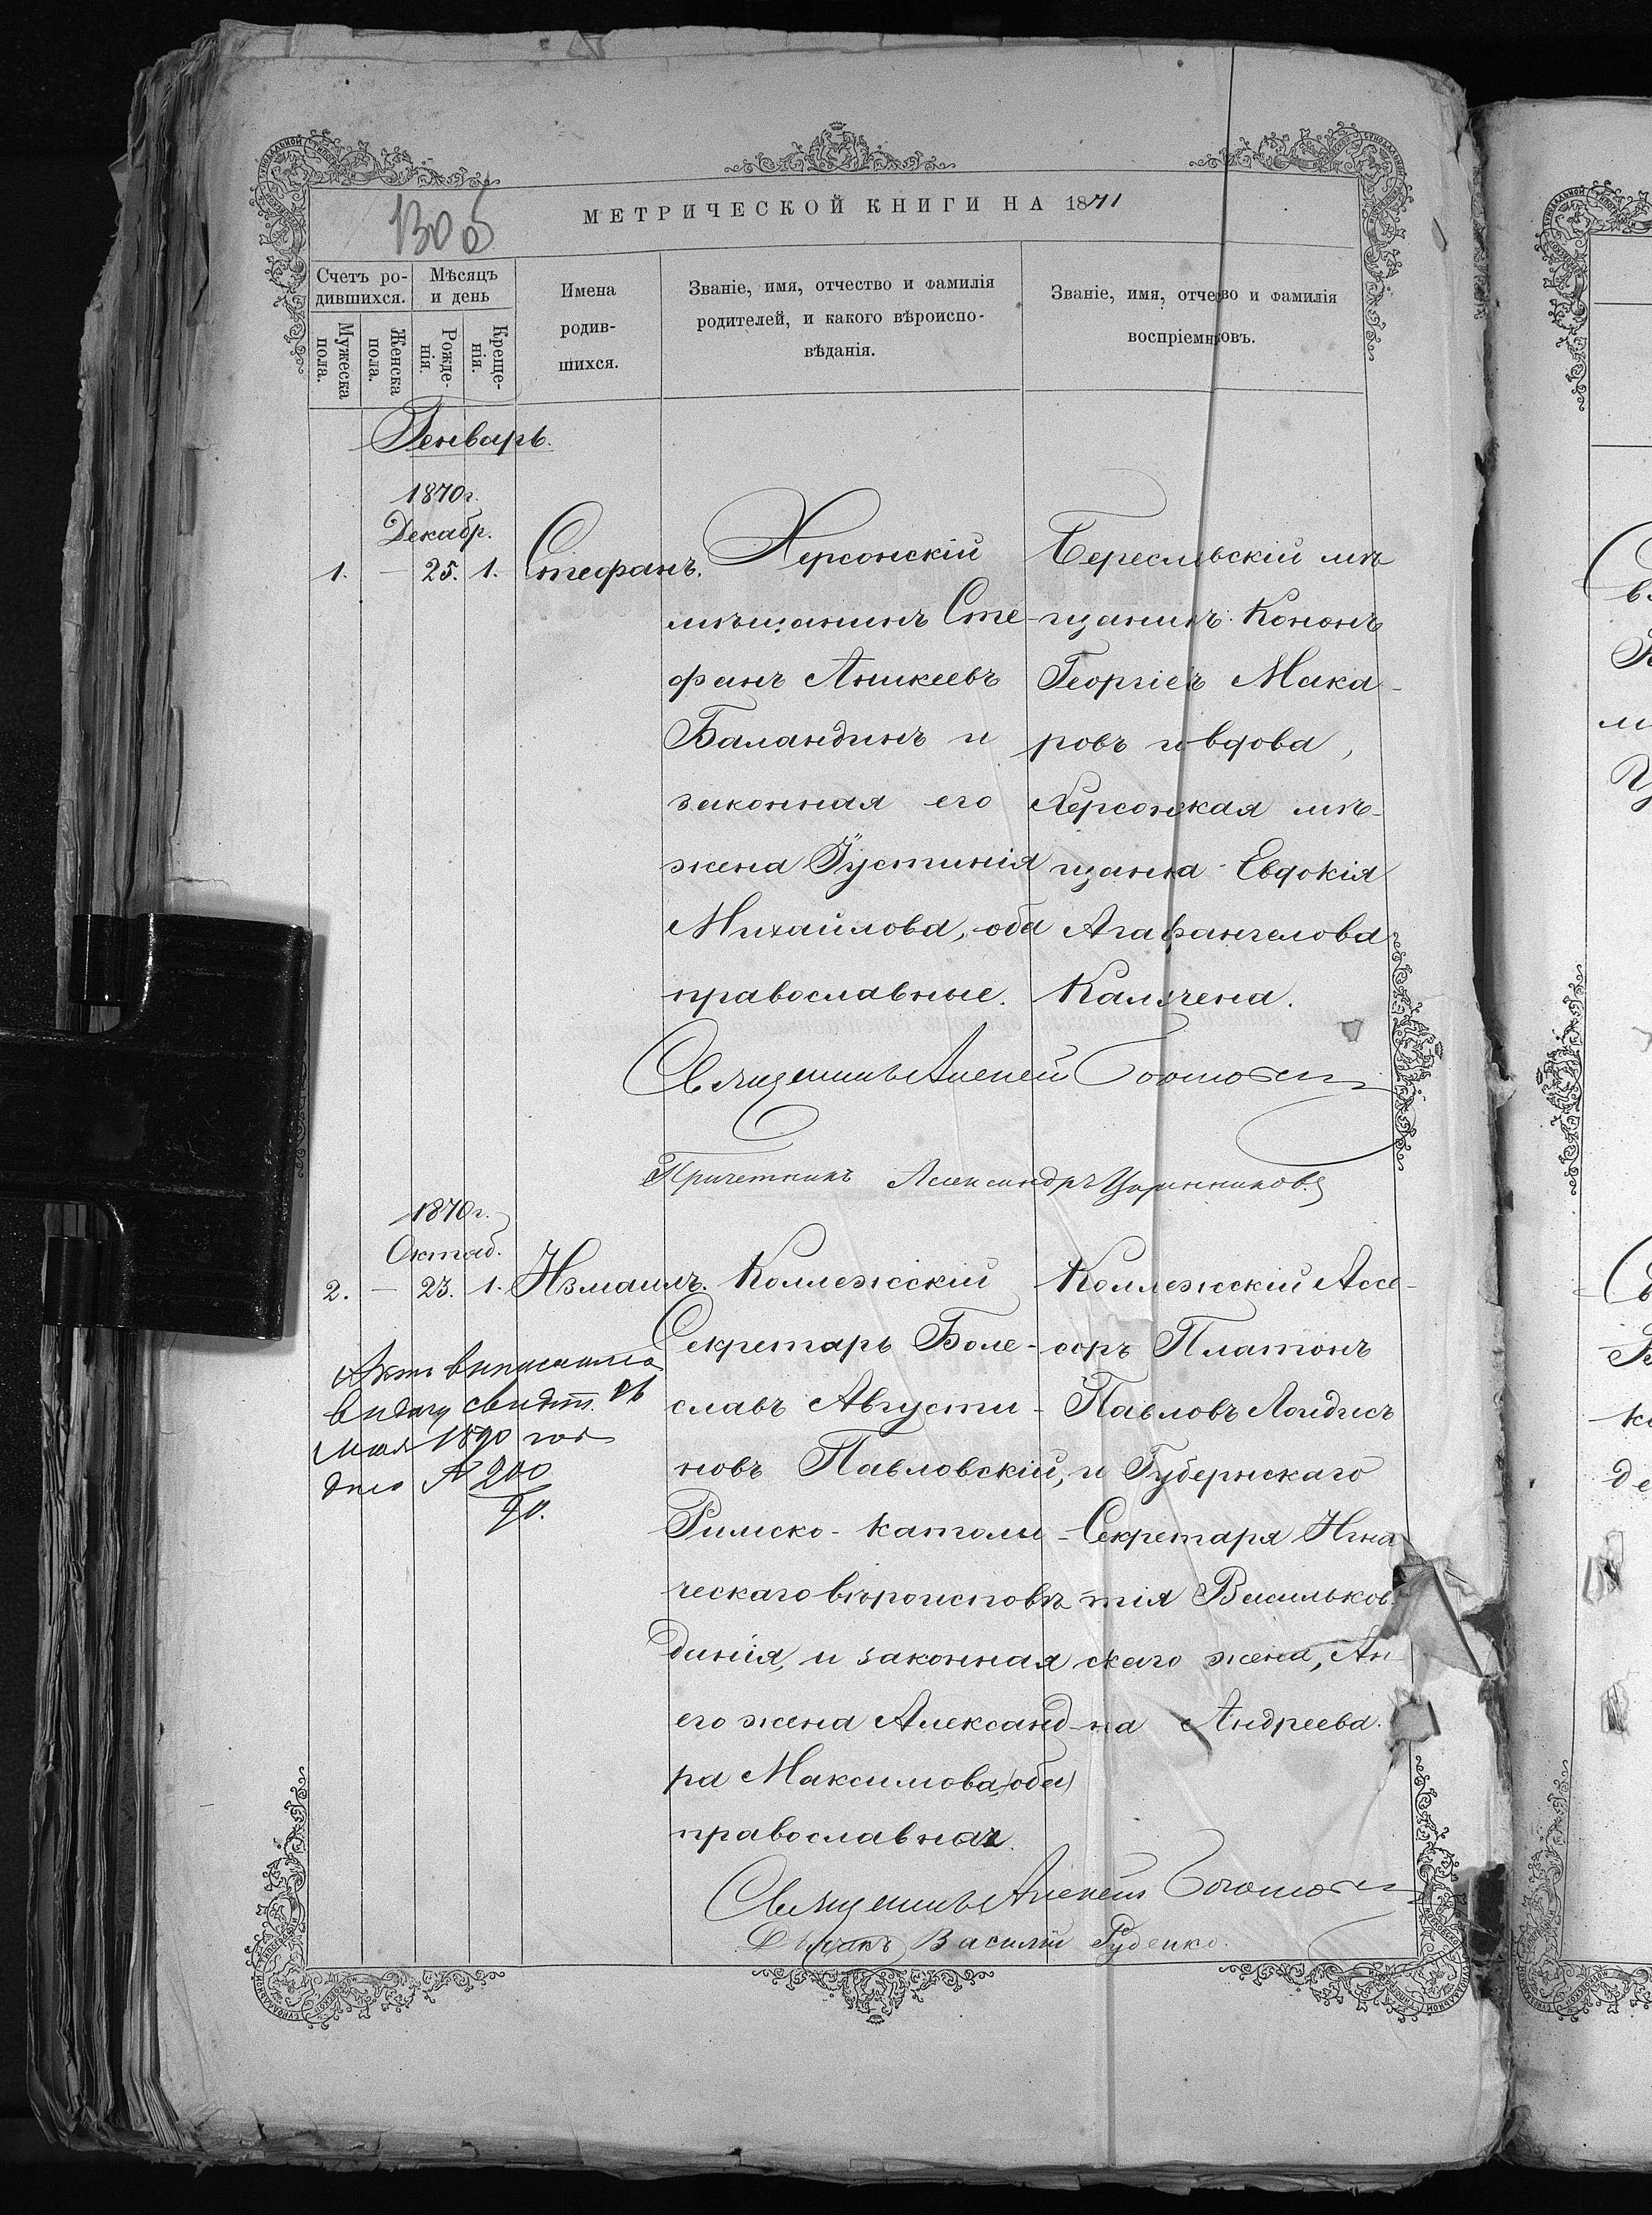 МЕТРИЧЕСКОЙ КНИГИ НА 1871
Счетъ ро-
дившихся.
Мѣсяцъ
и день
Мужеска
пола.
Женска
пола.
Рожде-
нія.
Креще-
нія.
Имена
родив-
шихся.
Званіе, имя, отчество и фамилія
родителей, и какого вѣроиспо-
вѣданія.
Званіе, имя, отчество и фамилія
воспріемниковъ.
Генварь.
1870г.
Декабр.
1. — 25. 1. Стефанъ.
Херсонскій
мѣщанинъ Сте-
фанъ Аникеевъ
Баландинъ и
законная его
жена Іустинія
Михаилова, оба
православные.
Береславскій мѣ
щанинъ Кононъ
Георгіев Мака-
ровъ и вдова,
Херсонская мѣ-
щанка Евдокія
Агафангелова
Калячена.
Священникъ Алексей
Причетникъ Александръ
1870г.
Октяб.
2. — 23. 1. Измаилъ.
Коллежскій
Секретарь Боле-
славъ Августи-
новъ Павловскій,
Римско-католи-
ческаго вѣроисповѣ
данія, и законная
его жена Александ-
ра Максимова, (оба)
православная.
Коллежскій Ассе-
соръ Платонъ
Павловъ
и Губернскаго
Секретаря Игна
тія Васильков
скаго жена, Ан
на Андреева.
Актъ
выдачу свидѣт. 26
мая 1890 года
дано № 200
90.
Священникъ Алексей
Дьякъ Василій Руденко.